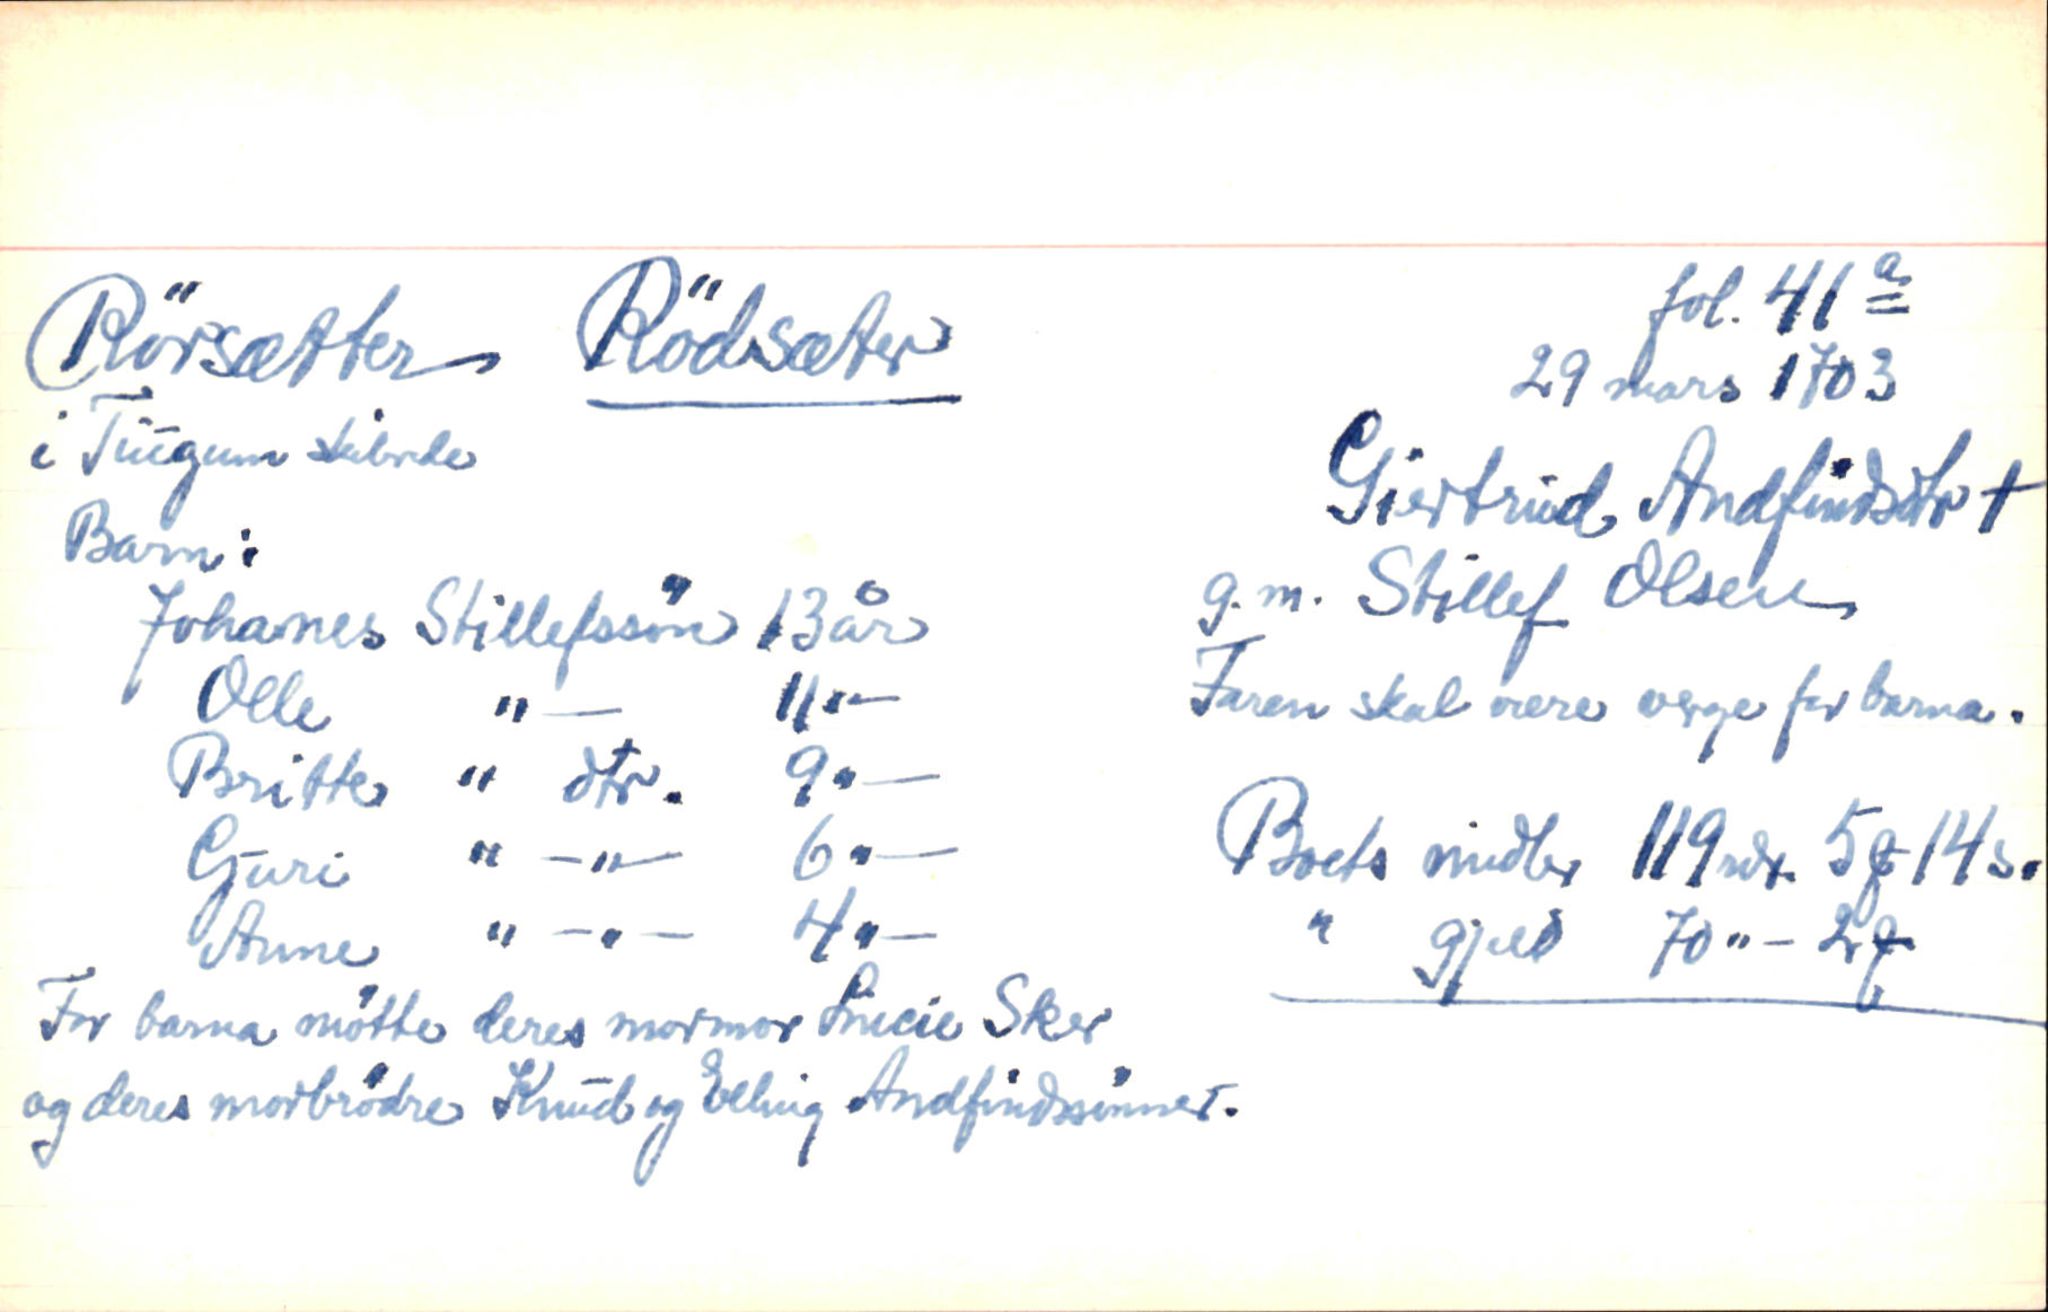 Rörsætter Rödsæter
i Tūūgum skibrede
Barn:
Johanes Stillefssön 13 år
Olle "— 11"—
Britte " dtr. 9"—
Gūri " —"— 6"—
Anne " —"— 4"—
For barna mötte deres mormor Lucie Sker
og deres morbrödre Knūd og Elling Andfindssönner.
fol. 41a
29 mars 1703
Giertrūd Andfindsdtr †
g. m. Stillef Olsen
Faren skal være verge for barna.
Boets midler 119 rdr. 5 ƒ 14 s.
" gjeld 70 " — 2 ƒ